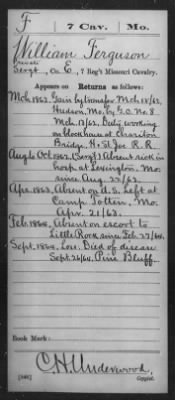 F 7 Cav. Mo.
William Ferguson
Private
Sergt., Co. E, 7 Reg't Missouri Cavalry.
Appears on Returns as follows:
Mch 1862, Gain by transfer Mch 18/62,
Hudson, Mo. by S.O. No. 8
Mch 13/62, Duty working
on block house at Chariton
Bridge, H. & St. Joe R.R.
Aug & Oct 1862, (Sergt) Absent sick in
hosp at Lexington, Mo.
since Aug. 27/62.
Apr. 1863, Absent on d.s. Left at
Camp Totten, Mo.
Apr. 21/63.
Feb. 1864, Absent on escort to
Little Rock since Feb. 27/64.
Sept. 1864, Loss. Died of disease
Sept. 26/64. Pine Bluff.
Book Mark:
C.H. Underwood,
(546) Copyist.